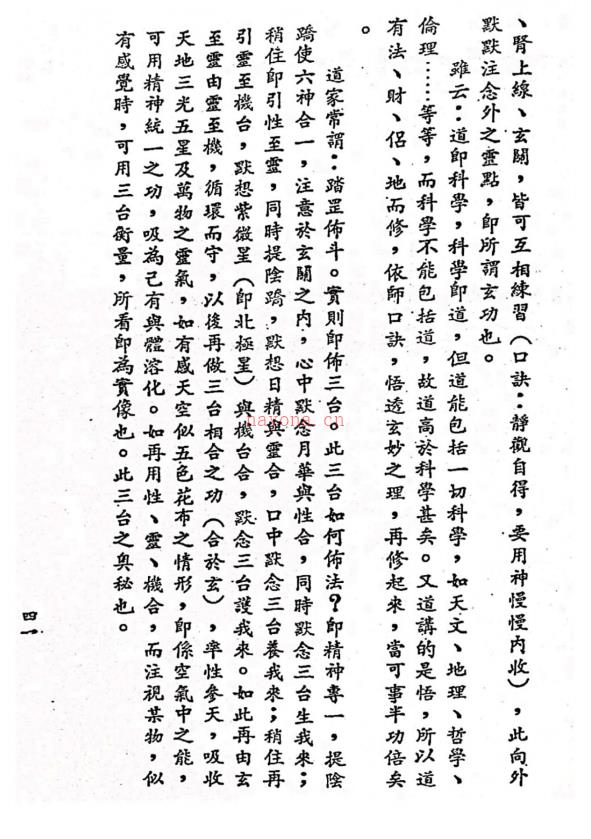 、腎上線、玄關，皆可互相練習（口訣：靜觀自得，要用神慢慢內收），此向外
默默注念外之靈點，即所謂玄功也。
雖云：道即科學，科學即道，但道能包括一切科學，如天文、地理、哲學、
倫理……等等，而科學不能包括道，故道高於科學甚矣。又道講的是悟，所以道
有法、財、侶、地而修，依師口訣，悟透玄妙之理，再修起來，當可事半功倍矣
。
道家常謂：踏罡佈斗。實則即佈三台。此三台如何佈法？即精神專一，提陰
蹻使六神合一，注意於玄關之內，心中默念月華與性合，同時默念三台生我來；
稍住即引性至靈，同時提陰蹻，默想日精與靈合，口中默念三台養我來；稍住再
引靈至機台，默想紫微星（即北極星）與機台合，默念三台護我來。如此再由玄
至靈由靈至機，循環而守，以後再做三台相合之功（合於玄），率性參天，吸收
天地三光五星及萬物之靈氣，如有感天空似五色花布之情形，即係空氣中之能，
可用精神統一之功，吸為己有與體溶化。如再用性、靈、機合，而注視某物，似
有感覺時，可用三台衡量，所看即為實像也。此三台之奧秘也。
四一
nayona.cn